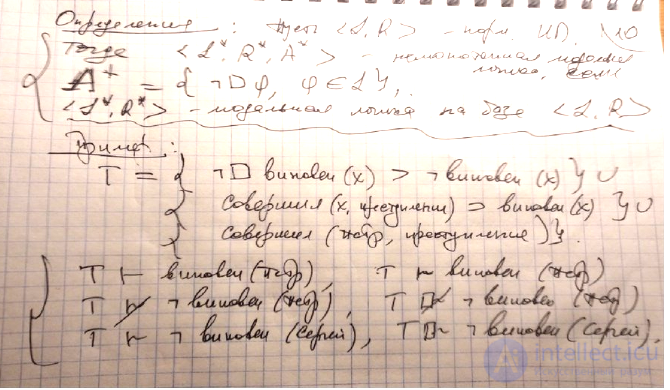 Определение: Пусть <L, R> – норм. ИП. \10
Тогда <L*, R*, A*> – немонотонная модальная логика, если
A* = { ¬□φ, φ ∈ L },
<L*, R*> – модальная логика на базе <L, R>
Пример:
T = { ¬□ виновен (x) ⊃ ¬виновен (x) } ∪
{ совершил (x, преступление) ⊃ виновен (x) } ∪
{ совершил (Петр, преступление) }.
T ⊢ виновен (Петр), T ⊢ виновен (Петр)
T ⊬ ¬виновен (Петр), T ¬виновен (Петр)
T ⊢ ¬виновен (Сергей), T ¬виновен (Сергей).
intellect.icu